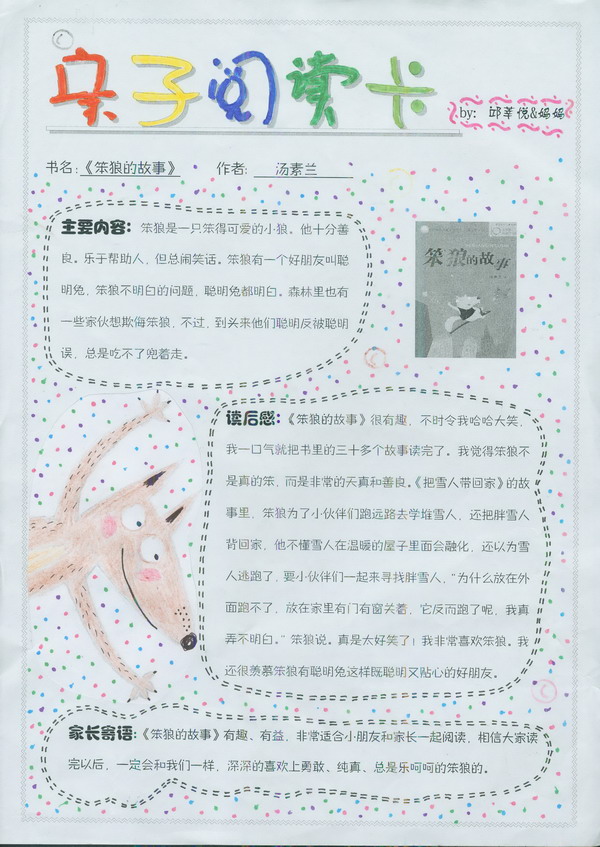 亲子阅读卡
by: 邱莘悦&妈妈
书名:《笨狼的故事》 作者: 汤素兰
主要内容: 笨狼是一只笨得可爱的小狼。他十分善
良。乐于帮助人，但总闹笑话。笨狼有一个好朋友叫聪
明兔，笨狼不明白的问题，聪明兔都明白。森林里也有
一些家伙想欺侮笨狼，不过，到头来他们聪明反被聪明
误，总是吃不了兜着走。
笨狼的故事
读后感:《笨狼的故事》很有趣，不时令我哈哈大笑，
我一口气就把书里的三十多个故事读完了。我觉得笨狼不
是真的笨，而是非常的天真和善良。《把雪人带回家》的故
事里，笨狼为了小伙伴们跑远路去学堆雪人，还把胖雪人
背回家，他不懂雪人在温暖的屋子里面会融化，还以为雪
人逃跑了，要小伙伴们一起来寻找胖雪人，“为什么放在外
面跑不了，放在家里有门有窗关着，它反而跑了呢，我真
弄不明白。”笨狼说。真是太好笑了！我非常喜欢笨狼。我
还很羡慕笨狼有聪明兔这样既聪明又贴心的好朋友。
家长寄语:《笨狼的故事》有趣、有益，非常适合小朋友和家长一起阅读，相信大家读
完以后，一定会和我们一样，深深的喜欢上勇敢、纯真、总是乐呵呵的笨狼的。